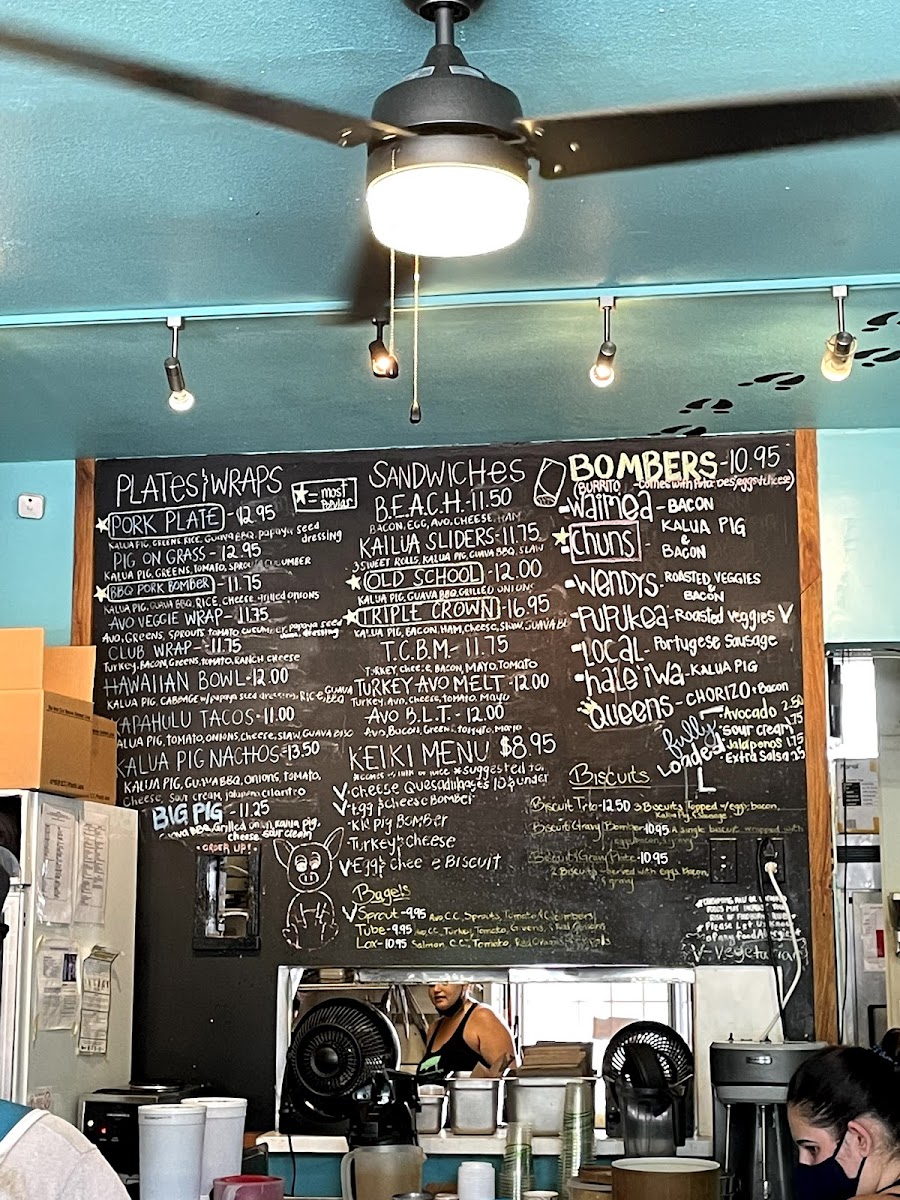 PLATES & WRAPS
★ = most Popular
PORK PLATE - 12.95
KALUA PIG, GREENS, RICE, GUAVA BBQ, papaya seed dressing
PIG ON GRASS - 12.95
KALUA PIG, GREENS, TOMATO, SPROUT, CUCUMBER
BBQ PORK BOMBER - 11.75
KALUA PIG, GUAVA BBQ, RICE, CHEESE, grilled onions
AVO VEGGIE WRAP - 11.75
AVO, GREENS, SPROUTS, TOMATO, CUCUMBER, papaya seed dressing
CLUB WRAP - 11.75
Turkey, BACON, GREENS, TOMATO, RANCH CHEESE
HAWAIIAN BOWL - 12.00
KALUA PIG, CABBAGE w/papaya seed dressing, RICE, GUAVA BBQ
KAPAHULU TACOS - 11.00
KALUA PIG, TOMATO, ONIONS, CHEESE, SLAW, GUAVA BBQ
KALUA PIG NACHOS - 13.50
KALUA PIG, GUAVA BBQ, ONIONS, TOMATO,
CHEESE, SOUR CREAM, jalapeno, cilantro
BIG PIG - 11.25
GUAVA BBQ, Grilled onion, kalua pig,
cheese, sour cream
ORDER UP!
SANDWICHES
B.E.A.C.H - 11.50
BACON, EGG, AVO, CHEESE, HAM
KAILUA SLIDERS - 11.75
3 SWEET ROLLS, KALUA PIG, GUAVA BBQ, SLAW
OLD SCHOOL - 12.00
KALUA PIG, GUAVA BBQ, GRILLED ONIONS
TRIPLE CROWN - 16.95
KALUA PIG, BACON, HAM, CHEESE, SLAW, GUAVA BBQ
T.C.B.M - 11.75
TURKEY, CHEESE, BACON, MAYO, TOMATO
TURKEY AVO MELT - 12.00
Turkey, AVO, CHEESE, TOMATO, MAYO
AVO B.L.T. - 12.00
AVO, BACON, GREENS, TOMATO, MAYO
KEIKI MENU $8.95
*suggested for 10 & under
V cheese Quesadilla
V Egg & cheese BOMBER
KAL PIG BOMBER
Turkey & cheese
V Egg & cheese BISCUIT
Bagels
V Sprout - 9.95 AVO, C.C., Sprouts, Tomato, Cucumbers
Tube - 9.95 AVO, C.C., Turkey, Tomato, Greens, Red Onions
Lox - 10.95 Salmon, C.C., Tomato, Red Onions
BOMBERS - 10.95
(BURRITO - comes with potatoes/eggs & cheese)
Waimea - BACON
Chuns - KALUA PIG & BACON
WENDYS - ROASTED VEGGIES & BACON
PUPUKEA - Roasted veggies V
LOCAL - Portugese Sausage
Hale'iwa - KALUA PIG
Queens - CHORIZO & Bacon
fully Loaded
Avocado 2.50
Sour cream .75
Jalapenos 1.75
Extra Salsa .75
Biscuits
Biscuit Trio - 12.50 3 Biscuits, Topped w/eggs, bacon,
Kalua Pig & Sausage
Biscuit Gravy Bomber - 10.95 A single biscuit wrapped with
egg, bacon, & gravy
Biscuit Gravy Plate - 10.95
2 Biscuits served with eggs, bacon,
& gravy
Please Let Us Know
of any food Allergies
V - Vegetarian